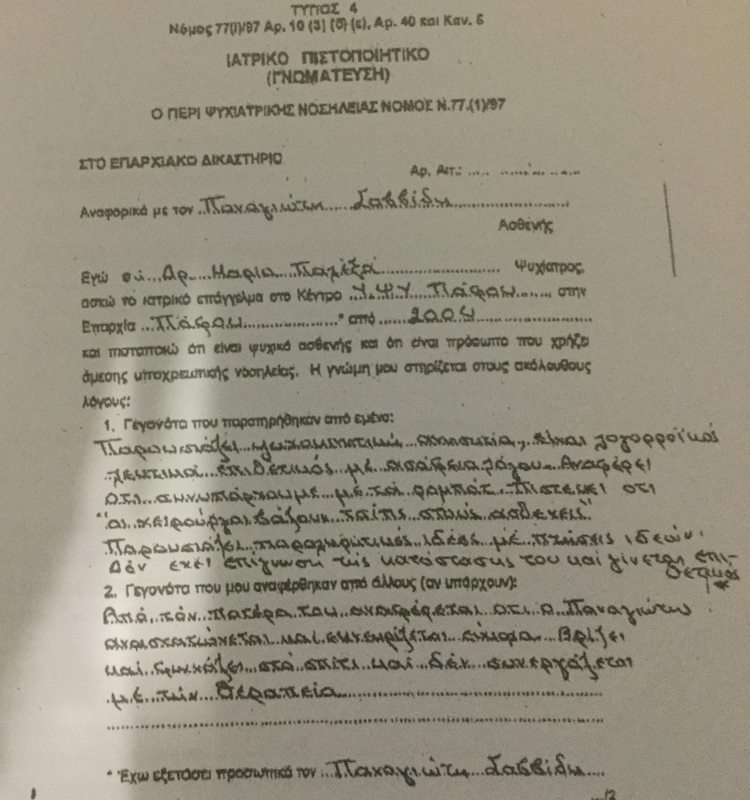 ΤΥΠΟΣ 4
Νόμος 77(Ι)/97 Αρ. 10 (3) (δ) (ε), Αρ. 40 και Καν. 5
ΙΑΤΡΙΚΟ ΠΙΣΤΟΠΟΙΗΤΙΚΟ
(ΓΝΩΜΑΤΕΥΣΗ)
Ο ΠΕΡΙ ΨΥΧΙΑΤΡΙΚΗΣ ΝΟΣΗΛΕΙΑΣ ΝΟΜΟΣ Ν.77.(1)/97
ΣΤΟ ΕΠΑΡΧΙΑΚΟ ΔΙΚΑΣΤΗΡΙΟ
Αρ. Αιτ.: .... ..............
Αναφορικά με τον Παναγιώτη Σαββίδη
Ασθενής
Εγώ Δρ Μαρία Παλέζα Ψυχίατρος,
ασκώ το ιατρικό επάγγελμα στο Κέντρο Υ.Ψ.Υ Πάφου στην
Επαρχία Πάφου * από 2004
και πιστοποιώ ότι είναι ψυχικά ασθενής και ότι είναι πρόσωπο που χρήζει
άμεσης υποχρεωτικής νοσηλείας. Η γνώμη μου στηρίζεται στους ακόλουθους
λόγους:
1. Γεγονότα που παρατηρήθηκαν από εμένα:
Παρουσιάζει ψυχοκινητική ανησυχία, είναι λογορροϊκός
λεκτικά επιθετικός με ασάφεια λόγου. Αναφέρει
ότι συνυπάρχουμε με τα ρομπότ. Πιστεύει ότι
"οι χειρούργοι βάζουν τσίπς στους ασθενείς"
Παρουσιάζει παραληρητικές ιδέες με πτήσεις ιδεών.
Δεν έχει επίγνωση της κατάστασης του και γίνεται επι-
θετικός
2. Γεγονότα που μου αναφέρθηκαν από άλλους (αν υπάρχουν):
Από τον πατέρα του αναφέρεται ότι ο Παναγιώτης
αναστατώνεται και εκνευρίζεται εύκολα. Βρίζει
και φωνάζει στο σπίτι και δεν συνεργάζεται
με την θεραπεία
* Έχω εξετάσει προσωπικά τον Παναγιώτη Σαββίδη
.../2